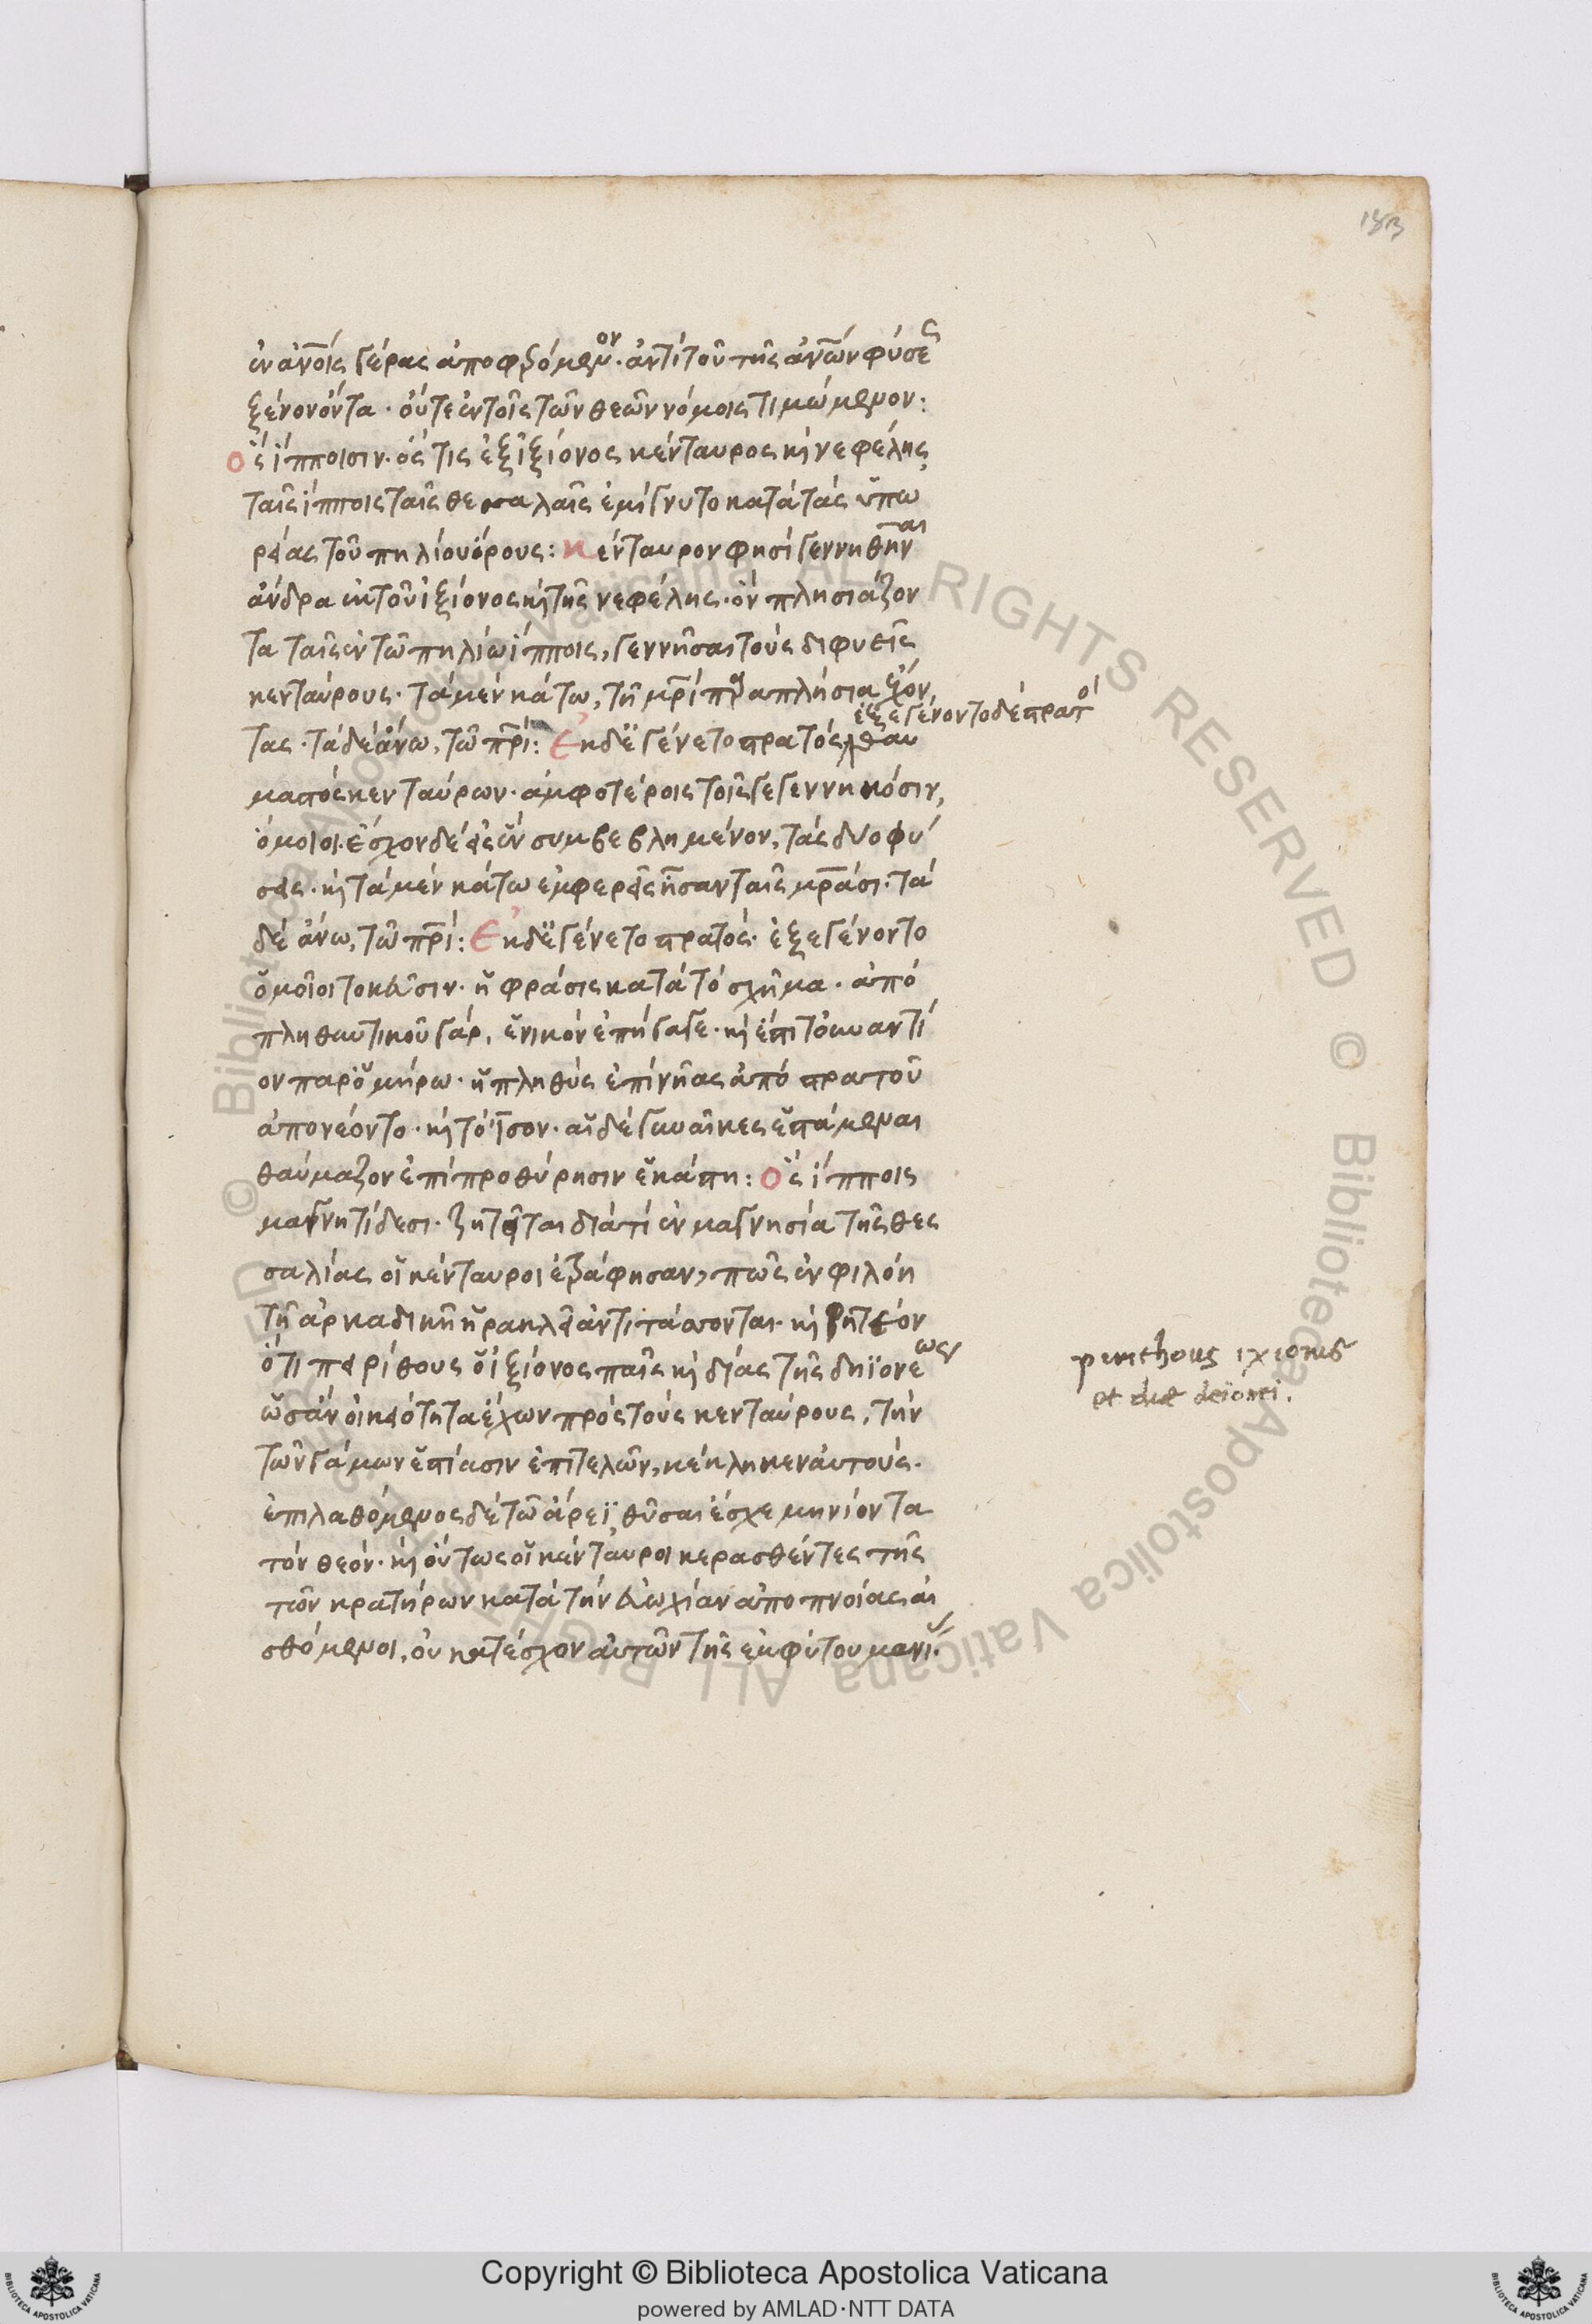 183
ἐν ἀνοῖς γέρας ἀποφερόμενον · ἀντὶ τοῦ τῆς ἀνων φύσεως
ξένον ὄντα · οὔτε ἐν τοῖς τῶν θεῶν νόμοις τιμώμενον :
ὃς ἵπποισιν · ὅς τις ἐξ ἰξίονος κένταυρος κὶ νεφέλης
ταῖς ἵπποις ταῖς θεσσαλαῖς ἐμίγνυτο κατὰ τὰς ὑπω
ρείας τοῦ πηλίου ὄρους : κένταυρον φησὶ γεννηθῆναι
ἄνδρα ἐκ τοῦ ἰξίονος κὶ τῆς νεφέλης · ὃν πλησιάζον
τα ταῖς ἐν τῶ πηλίω ἵπποις, γεννῆσαι τοὺς διφυεῖς
κενταύρους · τὰ μὲν κάτω, τῆ μρὶ παραπλήσια ἔχον
τας · τὰ δὲ ἄνω, τῶ πρί : ἐκ δὲ γένετο στρατός θαυ
ἐξεγένοντο δὲ στρατοὶ
μαστὸς κενταύρων · ἀμφοτέροις τοῖς γεγεννηκόσιν,
ὅμοιοι · ἔσχον δὲ εἰς ἓν συμβεβλημένον, τὰς δύο φύ
σεις · κὶ τὰ μὲν κάτω ἐμφερεῖς ἦσαν ταῖς μράσι · τὰ
δὲ ἄνω, τῶ πρί : ἐκ δὲ γένετο στρατός · ἐξεγένοντο
ὁμοῖοι τοκεῦσιν · ἡ φράσις κατὰ τὸ σχῆμα · ἀπὸ
πληθυντικοῦ γὰρ, ἑνικὸν ἐπήγαγε · κὶ ἔστι τὸ ἐναντί
ον παρ' ὁμήρω · ἡ πληθὺς ἐπὶ νῆας ἀπὸ στρατοῦ
ἀπονέοντο · κὶ τὸ ἴσον · αἱ δὲ γυναῖκες ἱστάμεναι
θαύμαζον ἐπὶ προθύρησιν ἑκάστη : ὃς ἵπποις
μαγνητίδεσι · ζητεῖται διατί ἐν μαγνησία τῆς θεσ
σαλίας οἱ κένταυροι ἐτράφησαν, πῶς ἐν φιλόη
τῆ ἀρκαδικῆ ἡρακλεῖ ἀντιτάσσονται · κὶ ῥητέον
ὅτι πειρίθους ὁ ἰξίονος παῖς κὶ δίας τῆς δηϊονέως
ὡσὰν οἰκειότητα ἔχων πρὸς τοὺς κενταύρους, τὴν
τῶν γάμων ἑστίασιν ἐπιτελῶν, κέκληκεν αὐτούς.
ἐπιλαθόμενος δὲ τῶ ἄρεϊ θῦσαι ἔσχε μηνίοντα
τὸν θεόν · κὶ οὕτως οἱ κένταυροι κερασθέντες τῆς
τῶν κρατήρων κατὰ τὴν εὐωχίαν ἀποπνοίας αἰ
σθόμενοι, οὐ κατέσχον αὐτῶν τῆς ἐμφύτου μανί
perithous ixionis
et diae deionei.
Copyright © Biblioteca Apostolica Vaticana
powered by AMLAD·NTT DATA